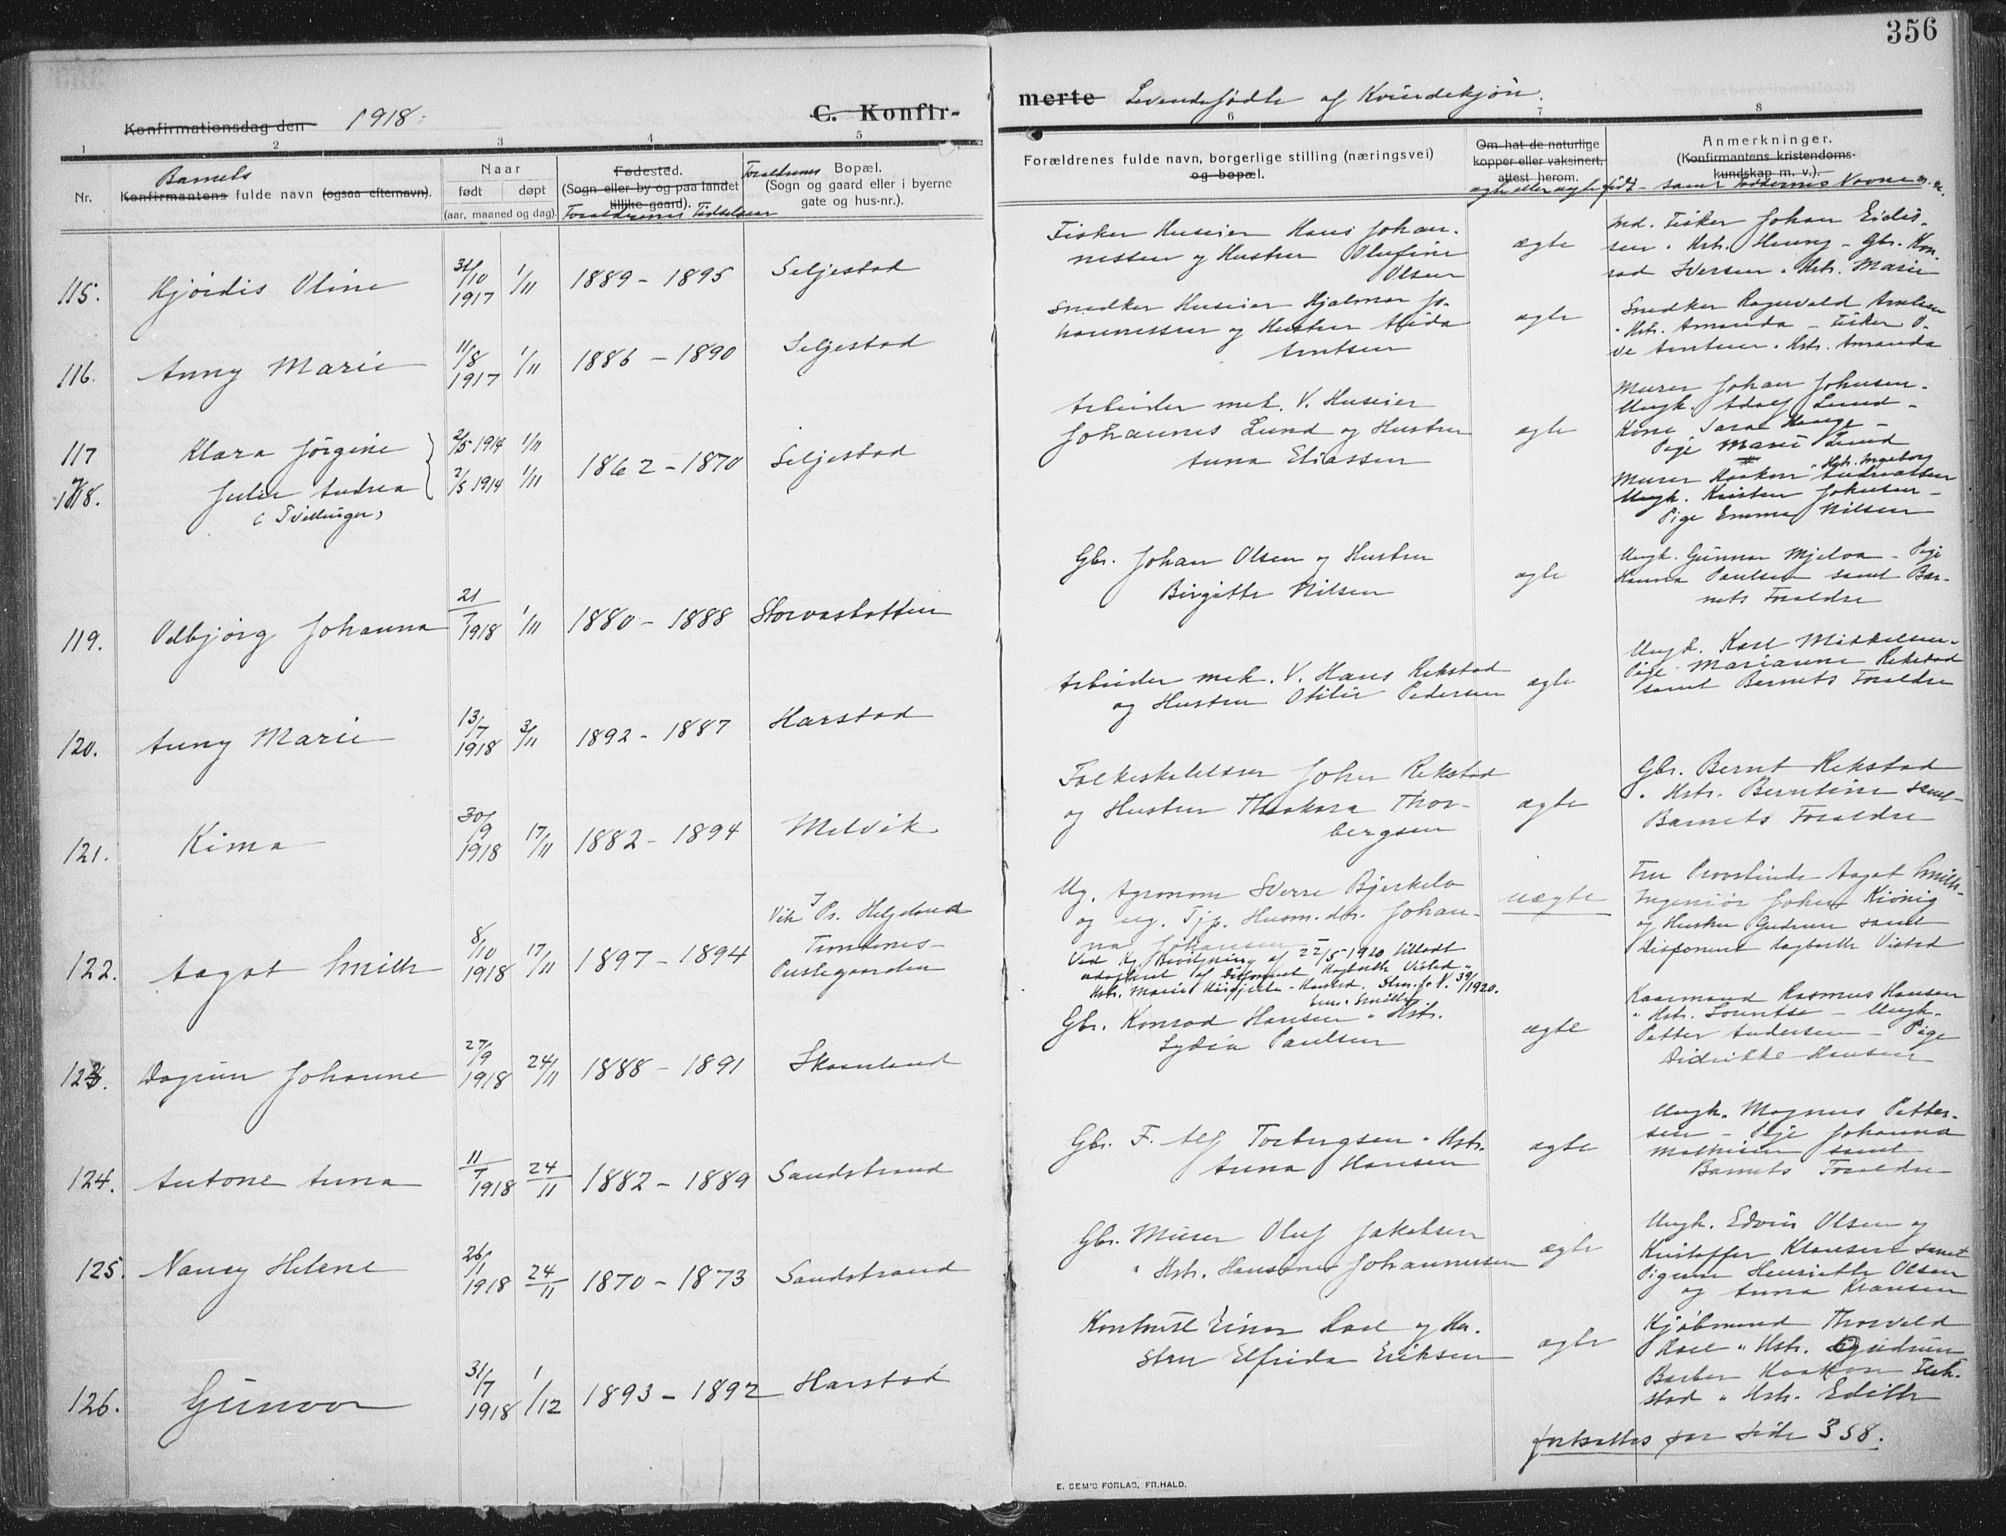 356
Konfirmationsdag den 1918. C. Konfir-
merte Levendefødte af Kvindekjøn.
1 2 3 4 5 6 7 8
Nr.
Barnets
Konfirmantens fulde navn (ogsaa efternavn).
Naar
født døpt
(aar, maaned og dag)
Fødested.
(Sogn eller by og paa landet
tillike gaard).
Forældrenes Fødselsaar
Forældrenes Bopæl.
(Sogn og gaard eller i byerne
gate og hus-nr.).
Forældrenes fulde navn, borgerlige stilling (næringsvei)
og bopæl.
Om hat de naturlige
kopper eller vaksinert,
attest herom.
Anmerkninger.
(Konfirmantens kristendoms-
kundskap m. v.).
ægte eller uægte født - samt Faddernes Navne m. v.
115. Hjördis Oline 31/10 1917 1/11 1889 - 1895 Seljestad
Fisker Huseier Hans Johan-
nessen og Hustru Olufine
Olsen
ægte
Md. Fisker Johan Eidis-
sen " Hst. Henny - Gbr. Kon-
rad Iversen " Hst. Marie
116. Anny Marie 11/8 1917 1/11 1886 - 1890 Seljestad
Snedker Huseier Hjalmar Jo-
hannessen og Hustru Alida
Arntsen
ægte
Snedker Ragnvald Arntsen
" Hst. Amanda - Fisker O-
ve Arntsen " Hst. Amanda
117 Klara Jörgine 2/5 1914 1/11
118. Julie Andrea 2/5 1914 1/11
(Tvillinger)
1862 - 1870 Seljestad
Arbeider mek. V. Huseier
Johannes Lund og Hustru
Anna Eliassen
ægte
Murer Johan Johnsen -
Ungk. Adolf Lund -
Kone Sara Hauge -
Pige Marie Lund
" Hst. Ingeborg
Murer Haakon Andreassen
Ungk. Kristen Johnsen -
Pige Emma Nilsen
119. Odbjörg Johanna 21/7 1918 1/11 1880 - 1888 Storvasbotten
Gbr. Johan Olsen og Hustru
Birgitte Nilsen
ægte
Ungk. Gunnar Mjelva - Pige
Hanna Paulsen samt Bar-
nets Foraldre
120. Anny Marie 13/7 1918 3/11 1892 - 1887 Harstad
Arbeider mek. V. Hans Rekstad
og Hustru Otilie Pedersen
ægte
Ungk. Karl Mikkelsen -
Pige Marianne Rekstad
samt Barnets Foraldre
121. Kima 30/9 1918 17/11 1882 - 1894 Melvik
Folkeskolelærer Johan Rekstad
og Hustru Theodora Thor-
bergsen
ægte
Gbr. Bernt Rekstad
" Hst. Berntine samt
Barnets Foraldre
122. Aagot Smith 8/10 1918 17/11 1897 - 1894
Vik Pr. Helgeland
Trondenes
Prestegaarden
Ug. Agronom Sverre Bjerkelo
og ug. Tjp. Husm. dtr. Johan-
na Johansen
Ved Kg. Bevilgning af 22/5 1920 tilladt
adopteret af Disponent Hagbarth Vistad "
uægte
Fru Provstinde Aagot Smith-
Ingeniør Johan Kiönig
og Hustru Gudrun samt
Disponent Hagbarth Vistad
123. Dagrun Johanne 27/9 1918 24/11 1888 - 1891 Skaanland
Gbr. Konrad Hansen " Hst.
Lydia Paulsen
ægte
Kaarmand Rasmus Hansen
" Hst. Lorentse - Ungk.
Petter Andersen - Pige
Didrikke Hansen
124. Antone Anna 11/7 1918 24/11 1882 - 1889 Sandstrand
Gbr. F. Alf Torbergsen " Hst.
Anna Hansen
ægte
Ungk. Magnus Petter-
sen - Pige Johanna
Mathisen samt
Barnets Foraldre
125. Nancy Helene 26/1 1918 24/11 1870 - 1873 Sandstrand
Gbr. Murer Oluf Jakobsen
" Hst. Hansine Johannessen
ægte
Ungk. Edvin Olsen og
Kristoffer Klausen samt
Pigerne Henriette Olsen
og Anna Klausen
126. Gunvor 31/7 1918 1/12 1893 - 1892 Harstad
Kontorist Einar Roel og Hu-
stru Elfrida Eriksen
ægte
Kjöbmand Thorvald
Roel " Hst. Gudrun
Barber Haakon
stad " Hst. Edith
fortsættes paa side 358.
E. SEM'S FORLAG, FR.HALD.